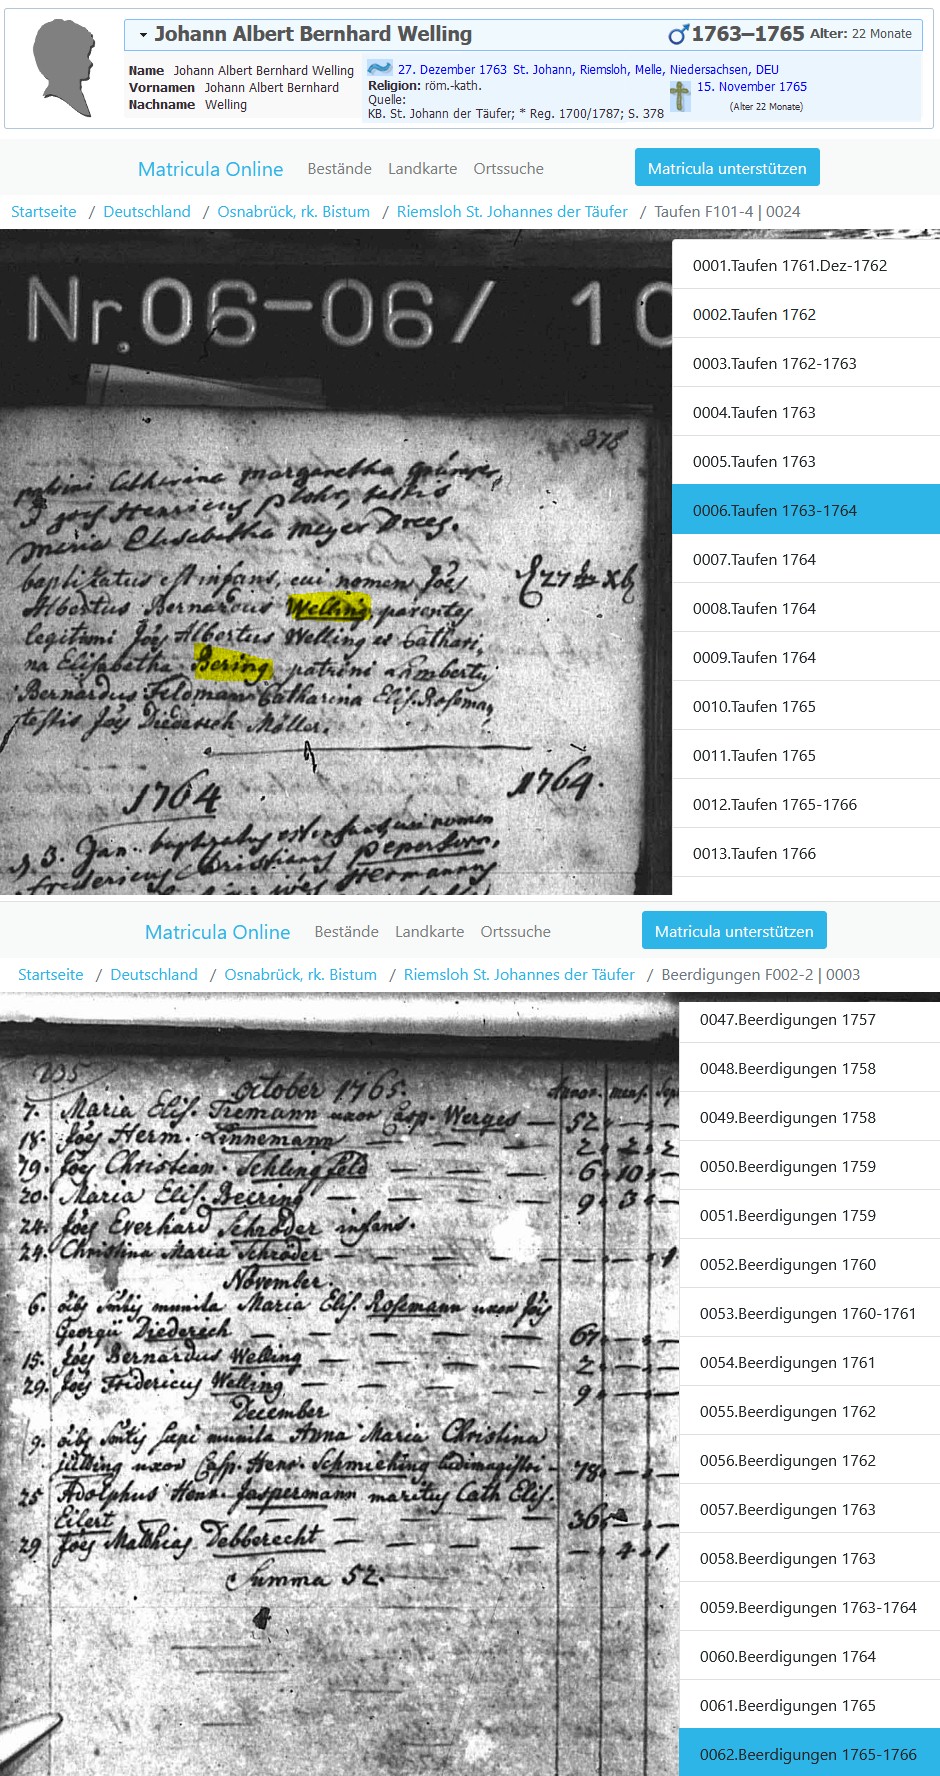 Johann Albert Bernhard Welling
1763–1765 Alter: 22 Monate
Name Johann Albert Bernhard Welling
Vornamen Johann Albert Bernhard
Nachname Welling
27. Dezember 1763 St. Johann, Riemsloh, Melle, Niedersachsen, DEU
Religion: röm.-kath.
Quelle:
KB. St. Johann der Täufer; * Reg. 1700/1787; S. 378
15. November 1765
(Alter 22 Monate)
Matricula Online Bestände Landkarte Ortssuche Matricula unterstützen
Startseite / Deutschland / Osnabrück, rk. Bistum / Riemsloh St. Johannes der Täufer / Taufen F101-4 | 0024
Nr. 06-06/ 10
378
patrini Catherina margaretha
Henricus testis
maria Elisabetha meyer Drees.
baptizatus est infans, cui nomen Joes
Albertus Bernardus Welling parentes
legitimi Joes Albertus Welling et Cathari,
na Elisabetha Bering patrini Lamberty
Bernardus Feldman Catharina Elis. Roseman
testis Joes Diederich Möller.
27
1764 1764.
3. Jan. baptizatus est infans cui nomen
fridericus Christianus
Hermannus
0001.Taufen 1761.Dez-1762
0002.Taufen 1762
0003.Taufen 1762-1763
0004.Taufen 1763
0005.Taufen 1763
0006.Taufen 1763-1764
0007.Taufen 1764
0008.Taufen 1764
0009.Taufen 1764
0010.Taufen 1765
0011.Taufen 1765
0012.Taufen 1765-1766
0013.Taufen 1766
Matricula Online Bestände Landkarte Ortssuche Matricula unterstützen
Startseite / Deutschland / Osnabrück, rk. Bistum / Riemsloh St. Johannes der Täufer / Beerdigungen F002-2 | 0003
october 1765. Annor. mens.
7. Maria Elis. Tiemann uxor Casp. Werges 52
18. Joes Herm. Linnemann 2 2 2
19. Joes Christian Schlingfeld 6 10
20. Maria Elis. Beering 9 3
24. Joes Everhard Schröder infans.
24. Christina Maria Schröder
November.
6. oibs Sntis munita Maria Elis. Rosemann uxor Joes
Georgii Diederich 67
15. Joes Bernardus Welling 2
29. Joes Fridericus Welling 9
December
9. oibs Sntis munita Anna Maria Christina
uxor Casp. Henr. Schmieching ludimagistri 78
25 Adolphus Henr. Jaspermann maritus Cath Elis.
Eilert 36
29 Joes Matthias Debberecht 4 1
Summa 52.
0047.Beerdigungen 1757
0048.Beerdigungen 1758
0049.Beerdigungen 1758
0050.Beerdigungen 1759
0051.Beerdigungen 1759
0052.Beerdigungen 1760
0053.Beerdigungen 1760-1761
0054.Beerdigungen 1761
0055.Beerdigungen 1762
0056.Beerdigungen 1762
0057.Beerdigungen 1763
0058.Beerdigungen 1763
0059.Beerdigungen 1763-1764
0060.Beerdigungen 1764
0061.Beerdigungen 1765
0062.Beerdigungen 1765-1766